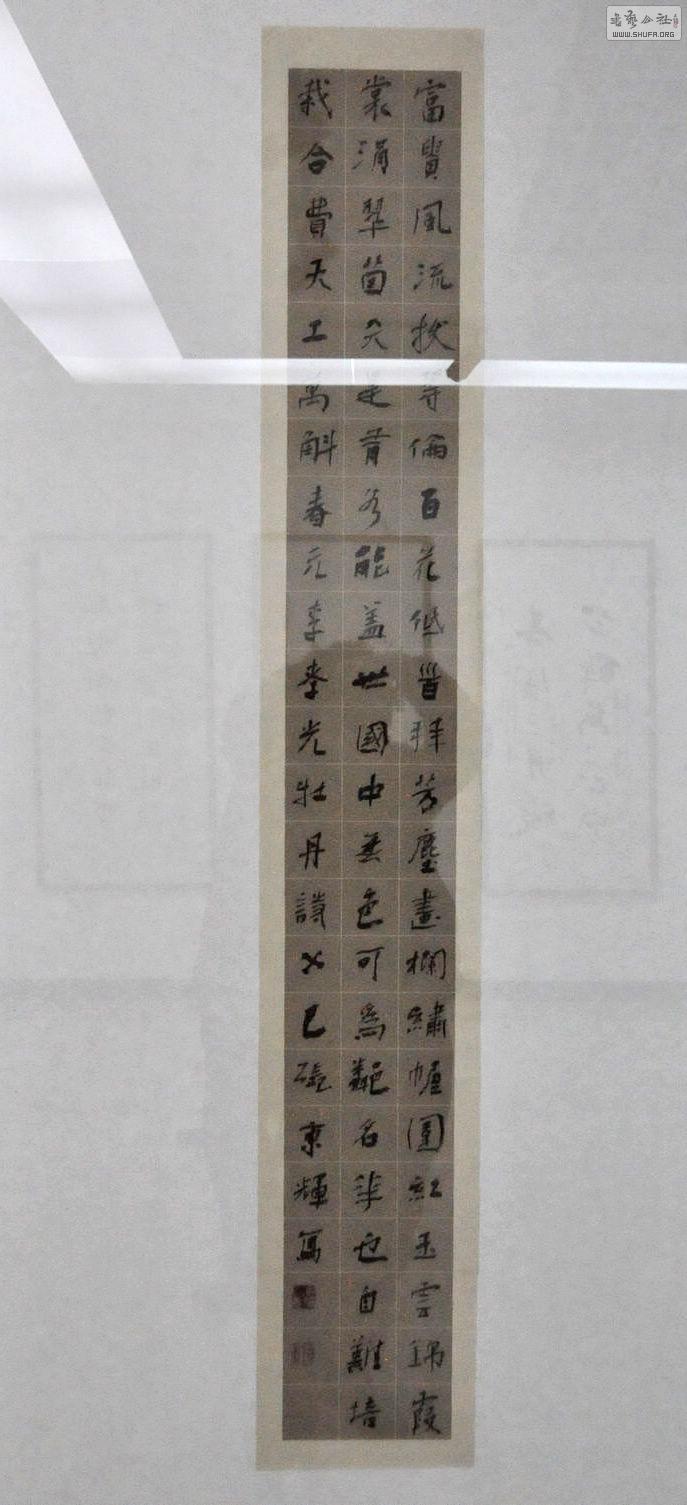 富貴風流拔等倫百花低首拜芳塵畫欄繡幄圍紅玉雲錦霞
裳涓翠茵天是有能蓋世國中無色可為鄰名華也自難培
栽合費天工萬斛春元李孝光牡丹詩巳張東輝寫
书艺公社
WWW.SHUFA.ORG